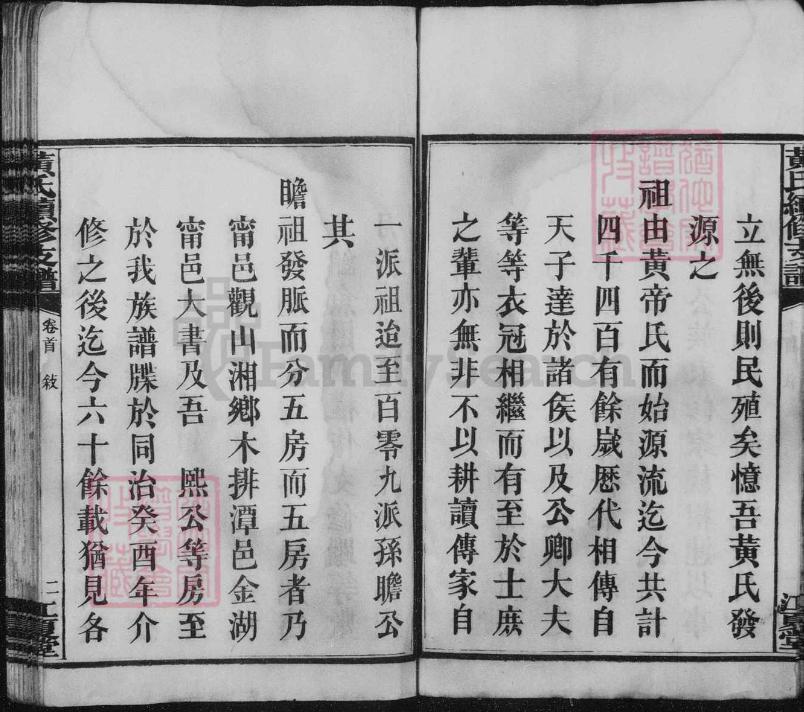 黃氏續修支譜
立無後則民殖矣憶吾黃氏發
源之
祖由黃帝氏而始源流迄今共計
四千四百有餘歲歷代相傳自
天子達於諸侯以及公卿大夫
等等衣冠相繼而有至於士庶
之輩亦無非不以耕讀傳家自
江夏堂
一派祖迨至百零九派孫瞻公
其
瞻祖發脈而分五房而五房者乃
甯邑觀山湘鄉木排潭邑金湖
甯邑大書及吾 熙公等房至
於我族譜牒於同治癸酉年介
修之後迄今六十餘載猶見各
黃氏續修支譜
卷首 敍
二
江夏堂
FamilySearch